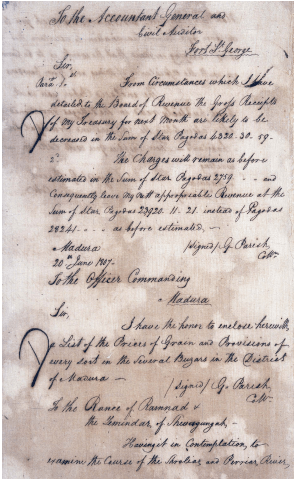 To the Accountant General and
Civil Auditor
Fort St. George
Sir,
Para. 1st. From Circumstances which I have
detailed to the Board of Revenue the Gross Receipts
of my Treasury for next Month are likely to be
decreased in the Sum of Star Pagodas 4320. 30. 59 -
2d. The Charges will remain as before
estimated in the Sum of Star Pagodas 2759 - - - and
Consequently leave my nett appropriable Revenue at the
Sum of Star Pagodas 23920. 11. 21. instead of Pagodas
28241 - - - - as before estimated. -
Madura (signed) G. Parish,
20th June 1807. Collr.
To the Officer Commanding
Madura
Sir,
I have the honor to enclose herewith
a List of the Prices of Grain and Provisions of
every sort in the Several Buzars in the District
of Madura -
(signed) G. Parish,
Collr.
To the Ranee of Ramnad &
the Zemindar of Shevagungah -
Having in Contemplation, to
examine the Course of the and River,